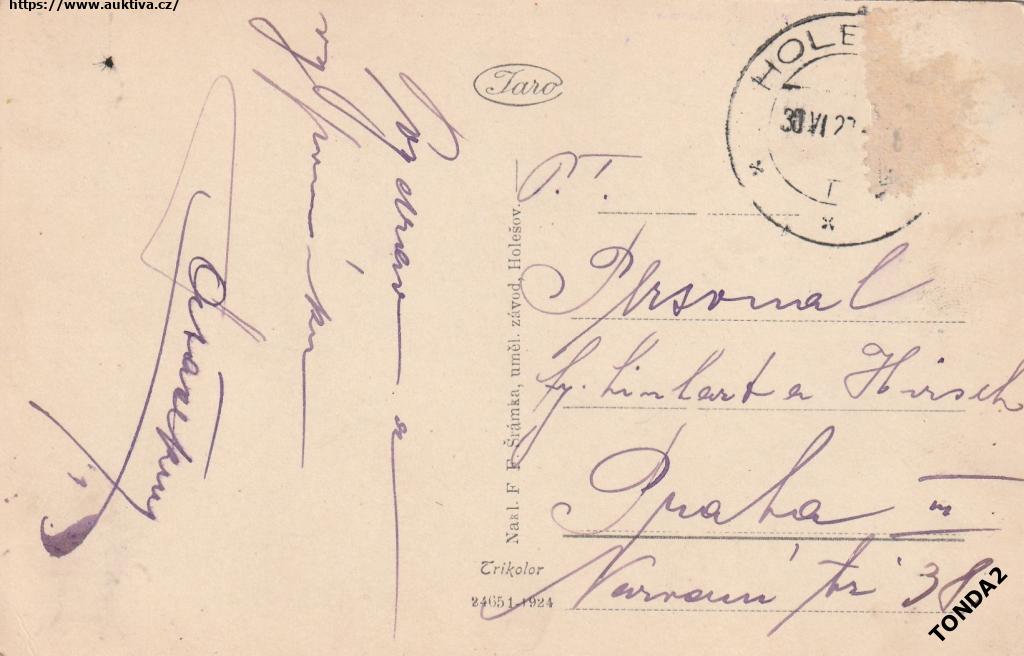 https://www.auktiva.cz/
Pozdrav a
vzpomínku
Taro
Nakl. F. F. Šrámka, uměl. závod, Holešov.
Trikolor
24651-1924
HOLE
30 VI 2
P. T.
Personal
fy. Linhart a Hirsch
Praha III
tř. 38
TONDA2